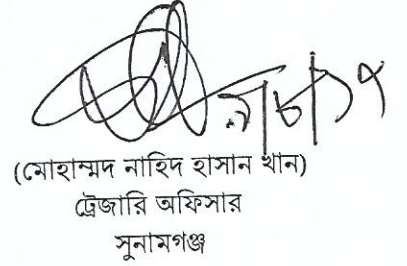 (মোহাম্মদ নাহিদ হাসান খান)
ট্রেজারি অফিসার
সুনামগঞ্জ